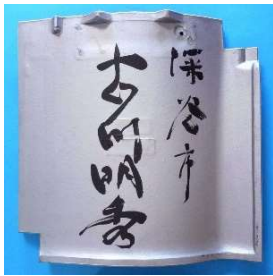 深谷市
吉川明秀